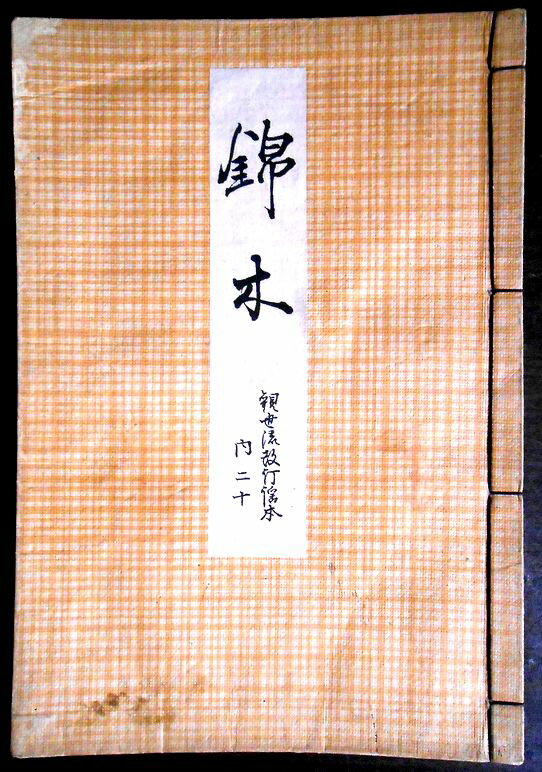 錦木
観世流改訂謡本
内二十